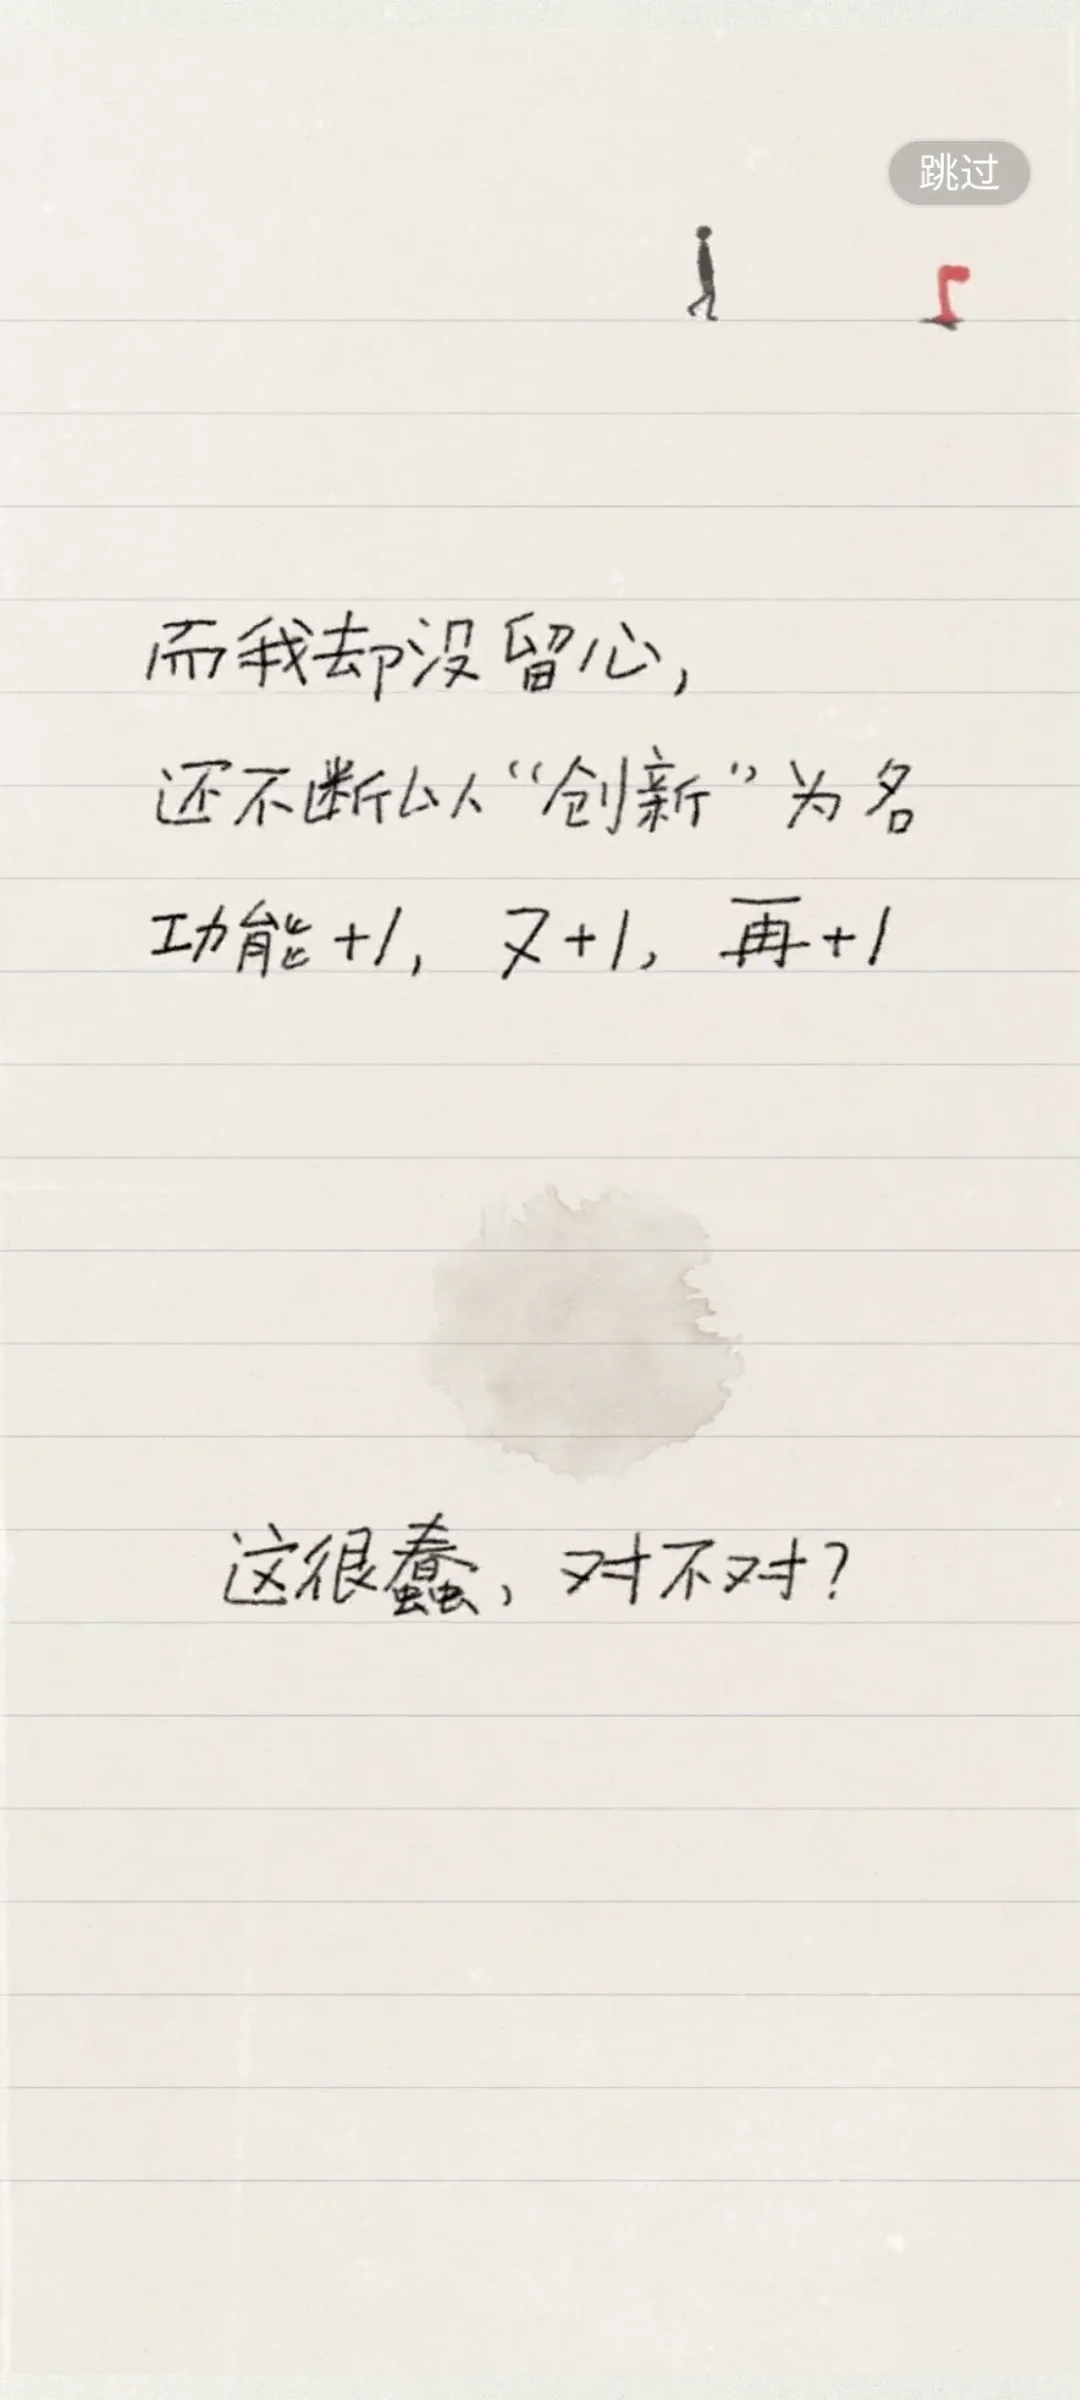 跳过
而我却没留心,
还不断以“创新”为名
功能+1, 又+1, 再+1
这很蠢, 对不对?